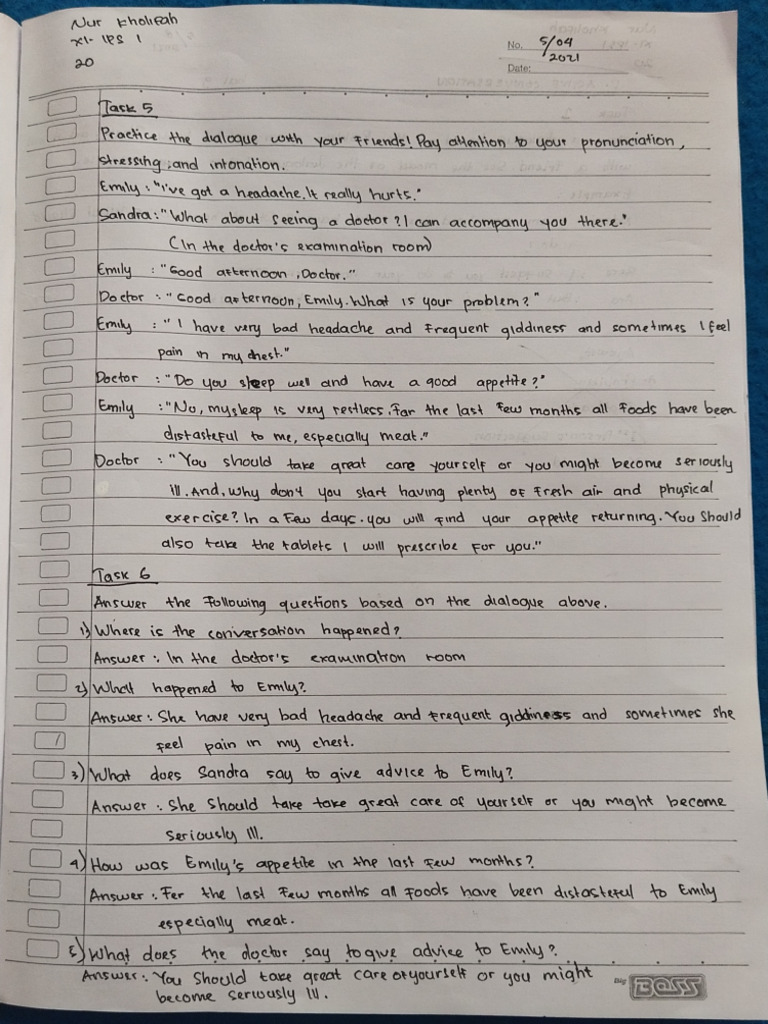 Nur Kholifah
XI- IPS 1
20
No. 5/04
2021
Date:
Task 5
Practice the dialogue with your friends! Pay attention to your pronunciation,
stressing, and intonation.
Emily : "I've got a headache. It really hurts."
Sandra: "What about seeing a doctor? I can accompany you there."
(In the doctor's examination room)
Emily : "Good afternoon, Doctor."
Doctor : "Good afternoon, Emily. What is your problem?"
Emily : "I have very bad headache and frequent giddiness and sometimes I feel
pain in my chest."
Doctor : "Do you sleep well and have a good appetite?"
Emily : "No, my sleep is very restless. For the last few months all foods have been
distasteful to me, especially meat."
Doctor : "You should take great care yourself or you might become seriously
ill. And, why don't you start having plenty of fresh air and physical
exercise? In a few days. you will find your appetite returning. You should
also take the tablets I will prescribe for you."
Task 6
Answer the following questions based on the dialogue above.
1) Where is the conversation happened?
Answer : In the doctor's examination room
2) What happened to Emily?
Answer : She have very bad headache and frequent giddiness and sometimes she
feel pain in my chest.
3) What does Sandra say to give advice to Emily?
Answer : She should take take great care of yourself or you might become
seriously ill.
4) How was Emily's appetite in the last few months?
Answer : For the last few months all foods have been distasteful to Emily
especially meat.
5) What does the doctor say to give advice to Emily?
Answer : You should take great care of yourself or you might
become seriously ill.
Big BOSS